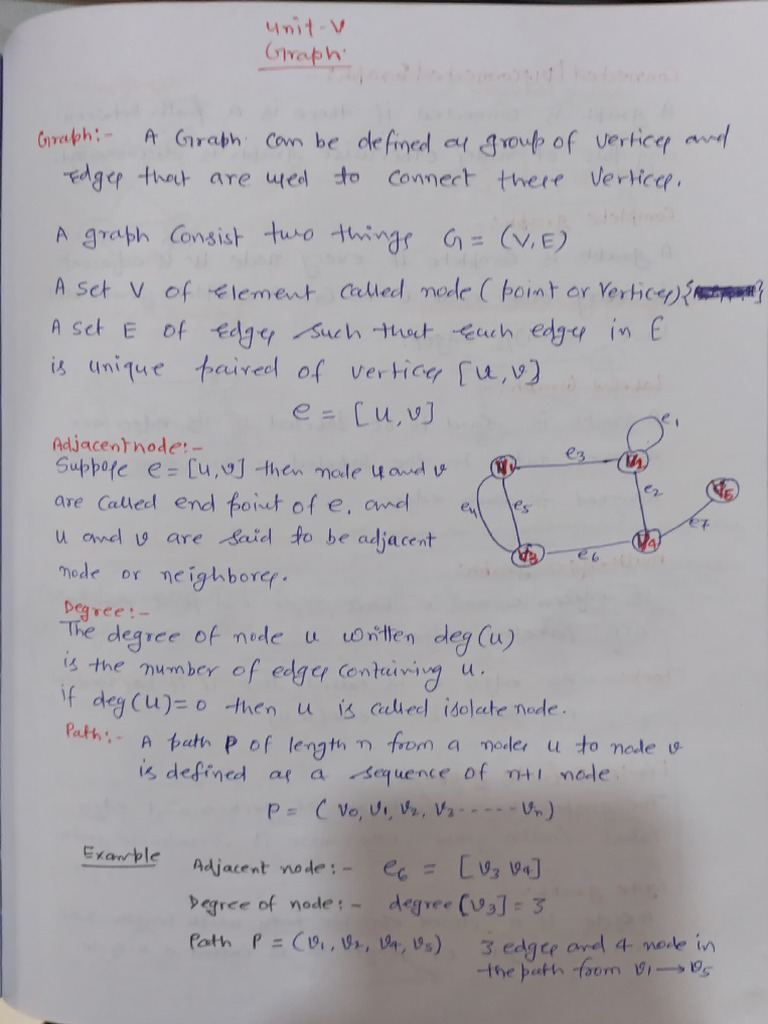 Unit-V
Graph.
Graph:- A Graph can be defined as group of vertices and
Edges that are used to connect these vertices.
A graph Consist two things G = (V, E)
A set V of Element Called node ( point or vertices) { }
A set E of Edges such that Each edges in E
is unique paired of vertices [u, v]
e = [u, v]
Adjacent node:-
Suppose e = [u, v] then node u and v
are called end point of e. and
u and v are said to be adjacent
node or neighbores.
e1
e3
V1
V2
e2
V5
e4
e5
e7
V3
e6
V4
Degree:-
The degree of node u written deg(u)
is the number of edges containing u.
if deg(u)=0 then u is called isolate node.
Path:- A path P of length n from a nodes u to node v
is defined as a sequence of n+1 node.
P = ( v0, v1, v2, v3 ------ vn)
Example
Adjacent node:- e6 = [v3 v4]
Degree of node:- degree [v3] = 3
Path P = (v1, v2, v4, v5) 3 edges and 4 node in
the path from v1 → v5